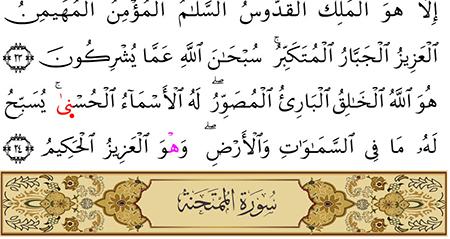 إِلَّا هُوَ ٱلْمَلِكُ ٱلْقُدُّوسُ ٱلسَّلَٰمُ ٱلْمُؤْمِنُ ٱلْمُهَيْمِنُ
ٱلْعَزِيزُ ٱلْجَبَّارُ ٱلْمُتَكَبِّرُۚ سُبْحَٰنَ ٱللَّهِ عَمَّا يُشْرِكُونَ ٢٣
هُوَ ٱللَّهُ ٱلْخَٰلِقُ ٱلْبَارِئُ ٱلْمُصَوِّرُۖ لَهُ ٱلْأَسْمَآءُ ٱلْحُسْنَىٰۚ يُسَبِّحُ
لَهُۥ مَا فِى ٱلسَّمَٰوَٰتِ وَٱلْأَرْضِۖ وَهْوَ ٱلْعَزِيزُ ٱلْحَكِيمُ ٢٤
سُورَةُ الْمُمْتَحَنَةِ